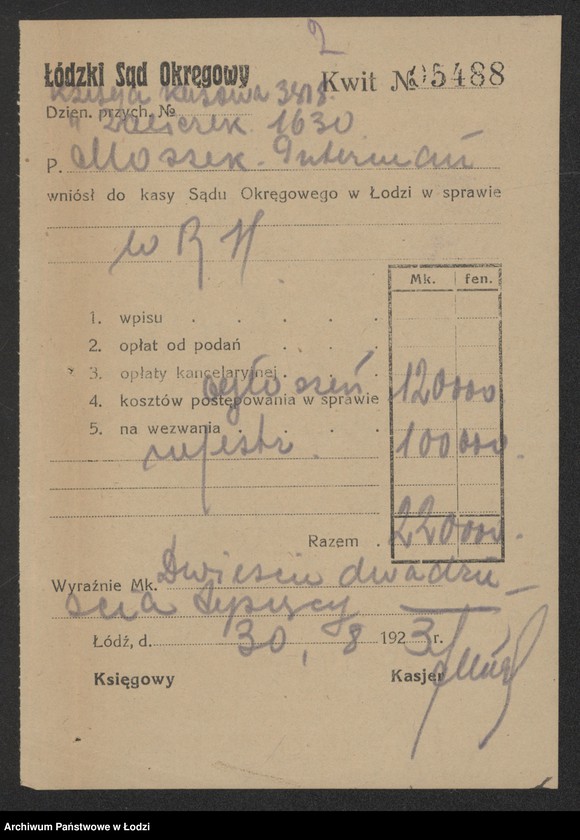 2
Łódzki Sąd Okręgowy
Kwit № 05488
Księga Kasowa 3418.
Dzien. przych. №
" zaliczek 1630
P. Moszek
wniósł do kasy Sądu Okręgowego w Łodzi w sprawie
w R H
Mk. fen.
1. wpisu
2. opłat od podań
3. opłaty kancelaryjnej
ogłoszeń 120000
4. kosztów postępowania w sprawie
5. na wezwania
rejestr. 100000.
Razem 220000.
Wyraźnie Mk. Dwieście dwadzie
ścia tysięcy
Łódź, d. 30, 8 1923 r.
Księgowy Kasjer
Archiwum Państwowe w Łodzi